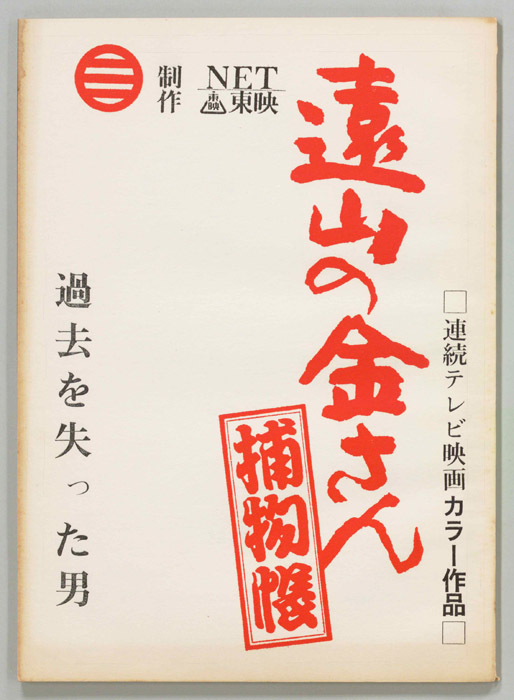 □連続テレビ映画カラー作品□
遠山の金さん
捕物帳
NET
東映
東映
制作
過去を失った男